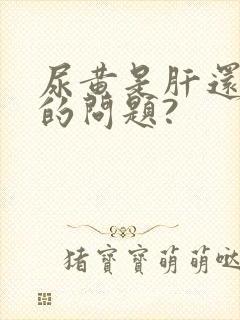 尿黄是肝還
的問題?
猪寶寶萌萌哒